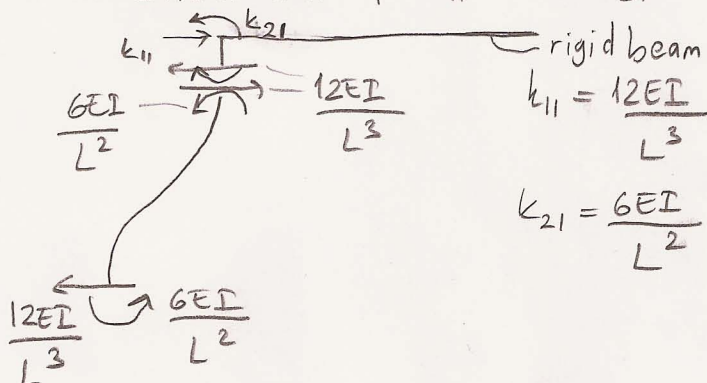 k₂₁
k₁₁
rigid beam
6EI/L²
12EI/L³
k₁₁ = 12EI/L³
k₂₁ = 6EI/L²
12EI/L³
6EI/L²